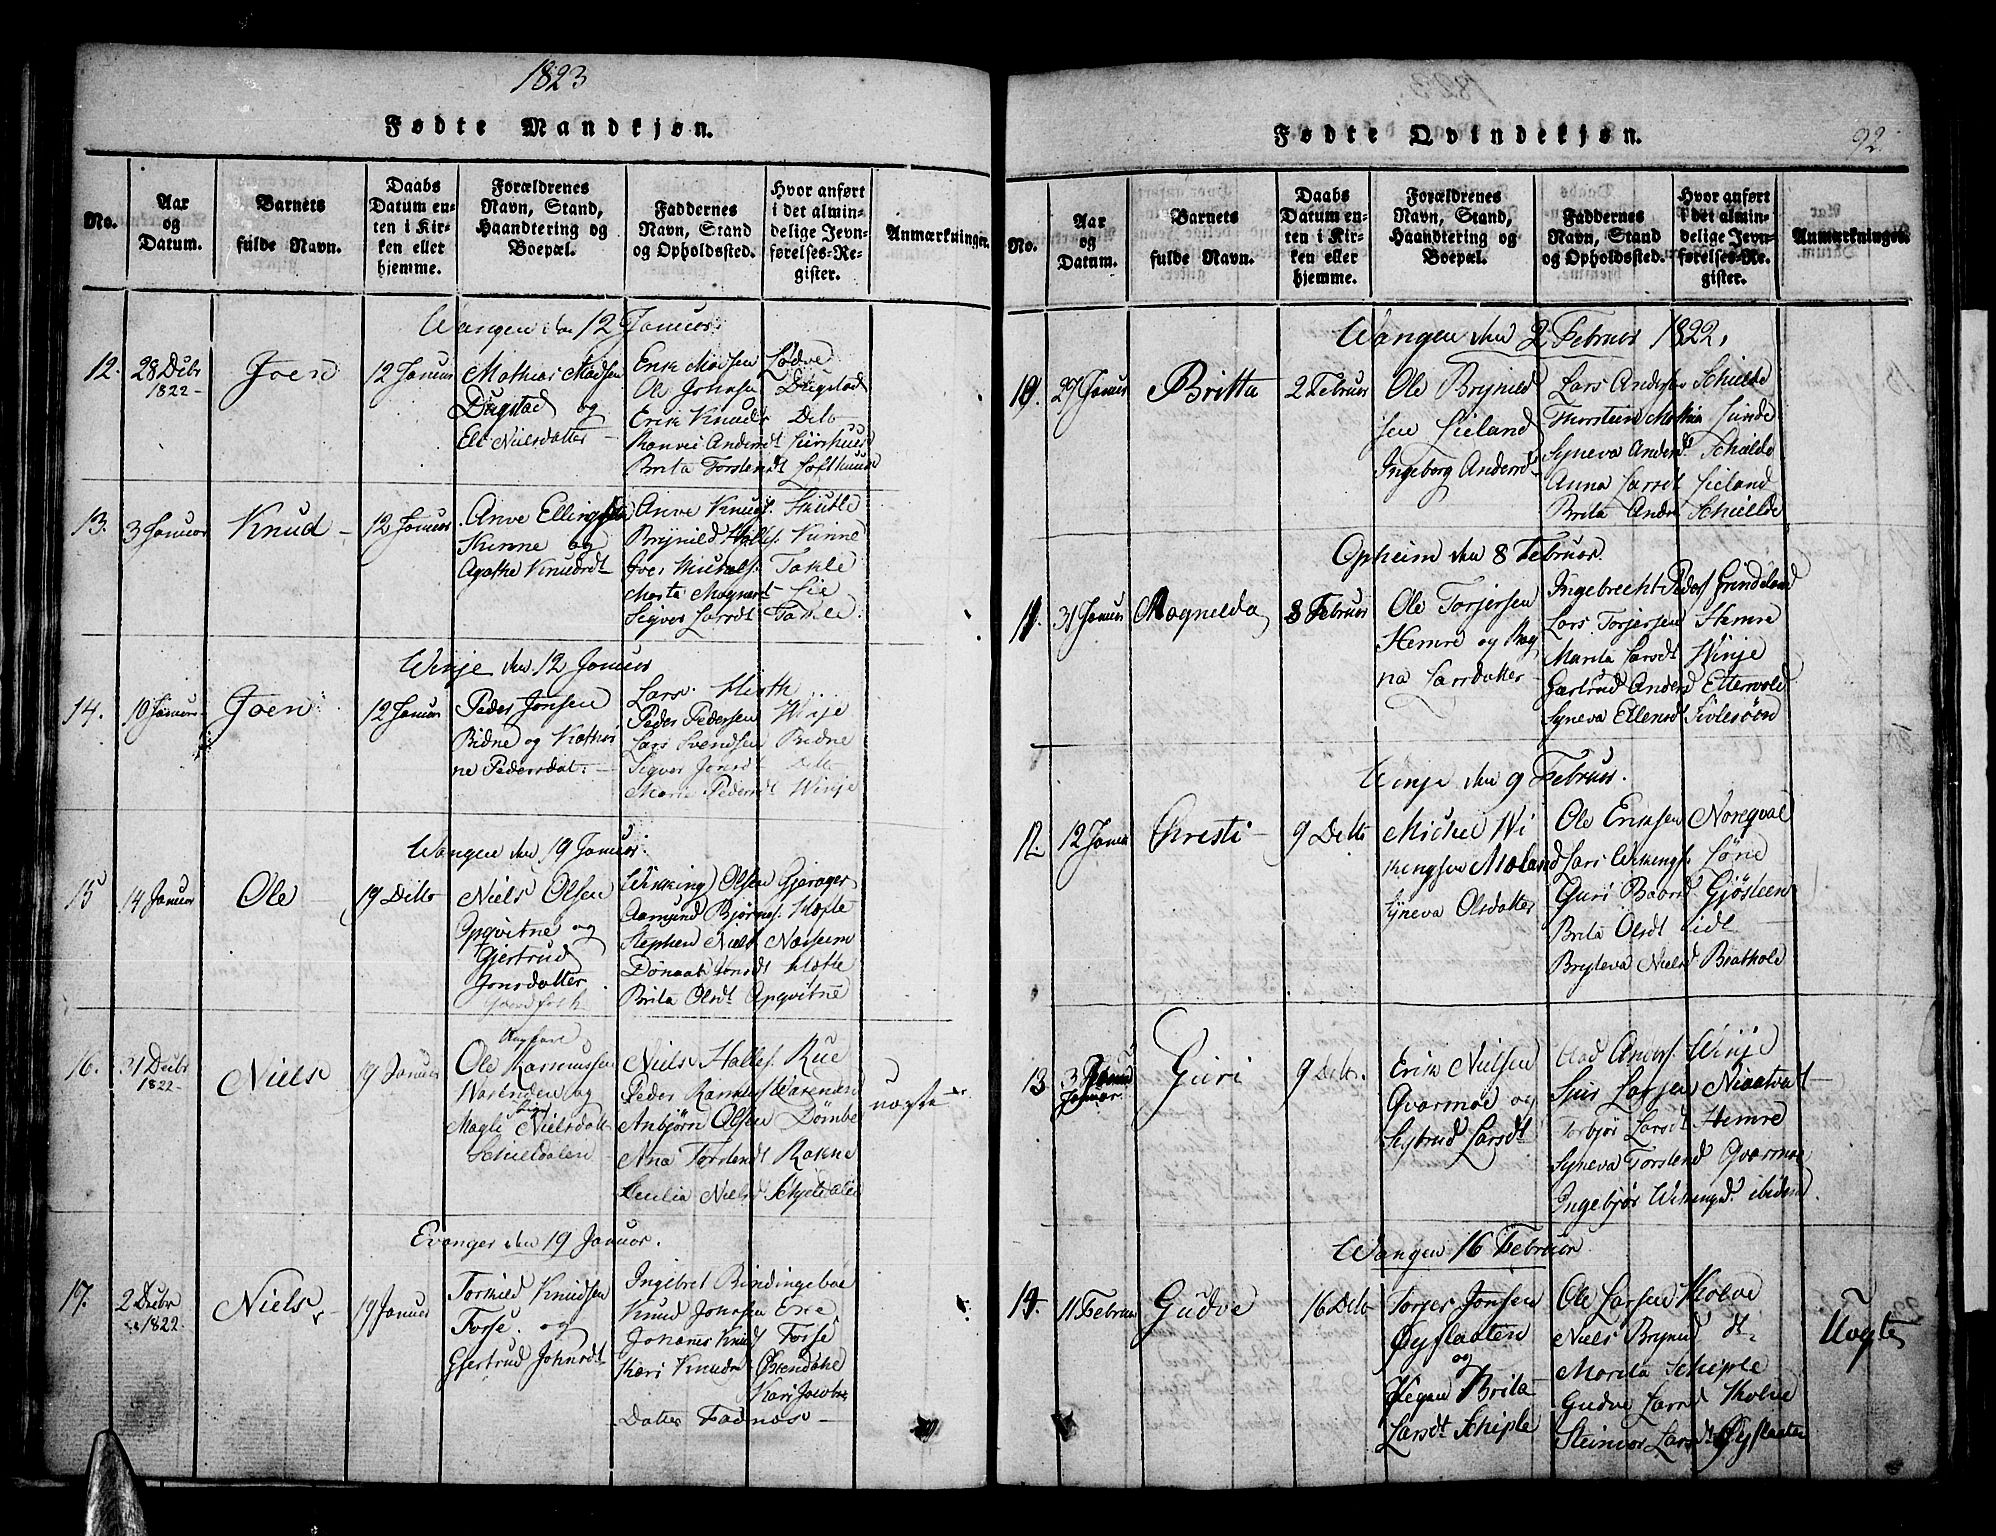 1823
Fødte Mandkjøn.
No.
Aar
og
Datum.
Barnets
fulde Navn.
Daabs
Datum en-
ten i Kir-
ken eller
hjemme.
Forældrenes
Navn, Stand,
Haandtering og
Boepæl.
Faddernes
Navn, Stand
og Opholdssted.
Hvor anført
i det almin-
delige Jevn-
førelses-Re-
gister.
Anmærkninger.
Wangen den 12 Januor
12. 28 Debr
1822
Joen
12 Januor
Mathias Madsen
Dugstad og
Eli Nielsdatter
Erik Madsen Lødve
Ole Johnsen Dugstad
Erik Knuds Dito
Ranvei Andersdt
Brita Torstensdt Lofthuus
13. 3 Januor
Knud
12 Januor
Anve Ellingsen
Kinne og
Agathe Knudsdt
Anve Knuds. Skutle
Brynild Halls. Kinne
Iver Michels. Takle
Marta Magnesdt Lie
Sigver Larsdt Takle
Winje den 12 Januor
14. 10 Januor
Joen
12 Januor
Peder Jonsen
Bidne og Kathri
ne Pedersdat.
Lars Hirth
Peder Pedersen Winje
Lars Svendsen Bidne
Sigver Jonsdt Dito
Marie Pedersdt Winje
Wangen den 19 Januor
15 14 Januor
Ole
19 Ditto
Niels Olsen
Opqvitne og
Gjertrud
Jonsdatter
Wikking Olsen Gjerager
Aamund Bjørns. Kløfte
Stephen Niels. Næsheim
Brita Olsdt Apqvitne
16. 31 Debr
1822
Niels
19 Januor
Ungkarl
Ole Rasmusen
Norenden og
Pige
Magli Nielsdatt
Schieldalen
Niels Halles. Rue
Anbjørn Olsen Dømbe
Ana Torstensdt Rokne
Cecilia Nielsd Schjeldalen
uægte
Evanger den 19 Januor.
17. 2 Debr
1822
Niels
19 Januor
Tormod Knudsen
Forse og
Gjertrud Johnsdt
Ingebret Bindingebøe
Knud Johnsen Ere
Johanes Knuds Forse
Kari Knudsd
Kari Jacobs
Datter Fadnæs
Fødte Qvindekjøn.
92.
No.
Aar
og
Datum.
Barnets
fulde Navn.
Daabs
Datum en-
ten i Kir-
ken eller
hjemme.
Forældrenes
Navn, Stand,
Haandtering og
Boepæl.
Faddernes
Navn, Stand
og Opholdssted.
Hvor anført
i det almin-
delige Jevn-
førelses-Re-
gister.
Anmærkninger.
Wangen den 2 Februor 1822,
10. 27 Januor
Britta
2 Februor
Ole Brynild
sen Lieland
Ingeborg Andersd
Lars Anders Schielde
Thorsteen Mathia Lunde
Syneva Andersd Schielde
Anna Larsdt Lieland
Brita Andersd Schielde
Opheim den 8 Februor.
11. 31 Januor
Magnilda
8 Februor
Ole Torjersen
Hemre og Rag
na Larsdatter
Ingebrecht Peders Grindeland
Lars Torjersen Hemre
Marita Larsdt Winje
Gertrud Andersd Ettervold
Syneva Ellensdt
Winje den 9 Februor.
12. 12 Januor
Christi
9 Ditto
Michel Wi
kengsen Moland
Syneva Olsdatter
Ole Eriksen Noreqval
Lars Wikings. Lønne
Guri Baards Gjøsteen
Brita Olsdt Lid
Bryteva Nielsd Brathole
13 3
Januor
Guri
9 Ditto.
Erik Nielsen
Qvarmoe og
Gjetrud Larsdt
Aad Anders. Winje
Sjur Larsen
Torbjør Larsdt Hemre
Syneva Torstensd Qvarmoe
Ingebjør Wikingsd ibidem
Wangen 16 Februor
14. 11 Februor
Gudve
16 Dito
Torjer Jonsen
Øyflaaten
og
Pigen Brita
Larsdt Schiple
Ole Larsen Kolve
Niels Brynild dt
Marita Schiple
Gudve Larsd Kolve
Steinvor Larsdt Øyflaaten
Uægte